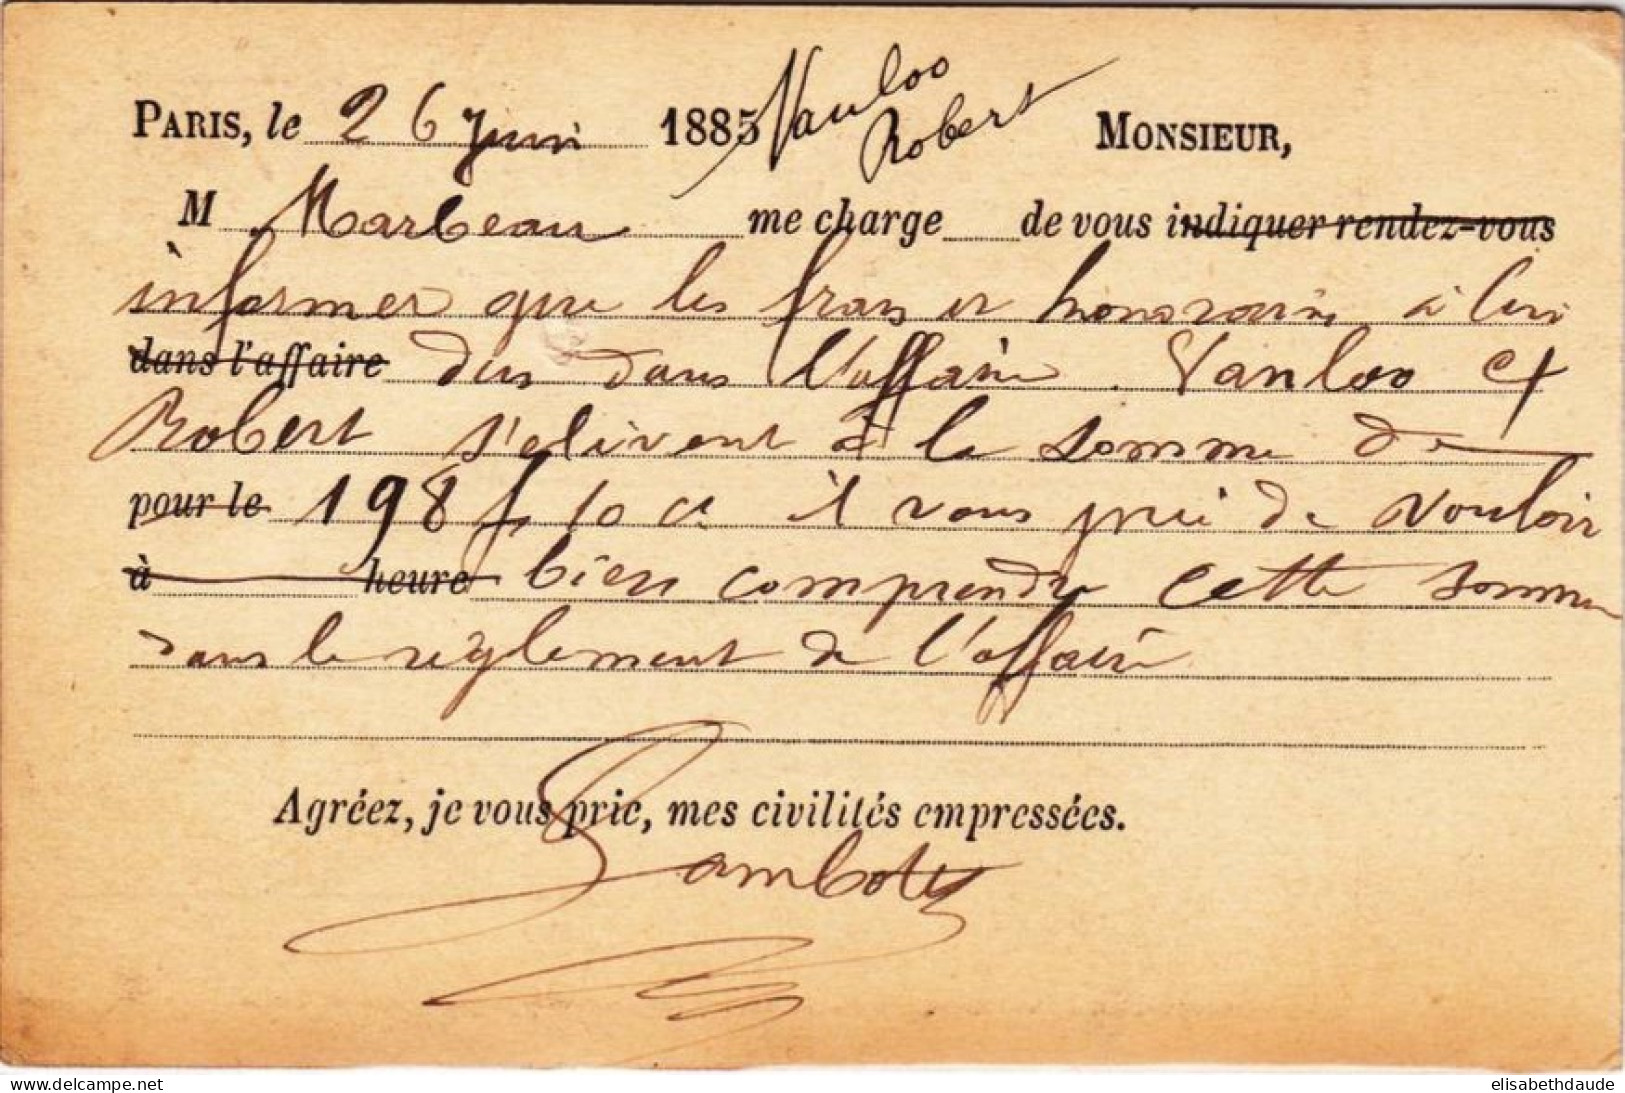 PARIS, le 26 juin 1885 Vanloo Robert MONSIEUR,
M Marbeau me charge de vous indiquer rendez-vous
informer que les frais et honoraires à lui
dans l'affaire dus dans l'affaire Vanloo et
Robert s'élèvent à la somme de
pour le 198 f 10 c il vous prie de vouloir
à heure bien comprendre cette somme
dans le règlement de l'affaire
Agréez, je vous prie, mes civilités empressées.
delcampe.net
elisabethdaude